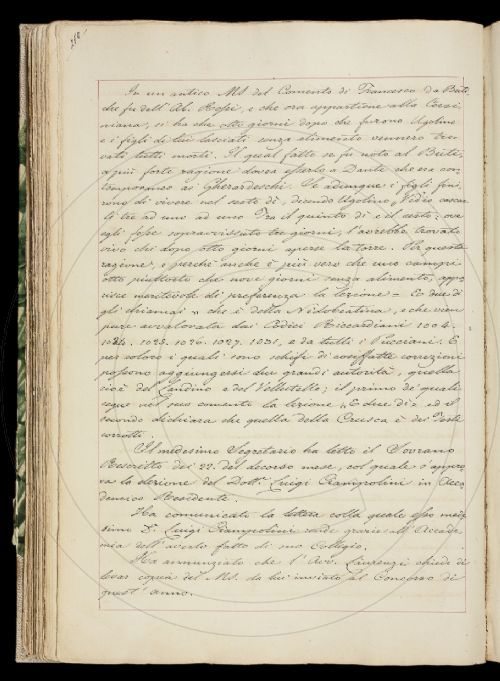 In un antico MS. del Comento di Francesco da Buti
che fu dell' Ab. Rossi, e che ora appartiene alla Corsi=
niana, si ha che otto giorni dopo che furono Ugolino
e i figli di lui lasciati senza alimento vennero tro
vati tutti morti. Il qual fatto se fu noto al Buti,
a più forte ragione dovea esserlo a Dante che era con
temporaneo ai Gherardeschi. Se adunque i figli fini
rono di vivere nel sesto dì, dicendo Ugolino, Vid'io casca
li tre ad uno ad uno Tra il quinto dì e il sesto: ove
egli fosse sopravvissuto tre giorni, l'avrebbe trovato
vivo chi dopo otto giorni aperse la torre. Per questa
ragione, e perchè anche è più vero che uno campi
otto piuttosto che nove giorni senza alimento, appa
risce meritevole di preferenza la lezione = E due dì
gli chiamai = che è della Nidobeatina, e che vien
pure avvalorata dai Codici Riccardiani 1004.
1024. 1025. 1026. 1027. 1031, e da tutti i Pucciani. E
per coloro i quali sono schifi di siffatte correzioni
possono aggiungersi due grandi autorità, quella
cioè del Landino e del Vellutello; il primo de' quali
segue nel suo comento la lezione "E due dì" ed il
secondo dichiara che quella della Crusca è dei Testi
corrotti.
Il medesimo Segretario ha letto il Sovrano
Rescritto dei 22. del decorso mese, col quale s'appro
va la elezione del Dott. Luigi Ciampolini in Acca
demico Residente.
Ha comunicato la lettera colla quale esso mede
simo S.r Luigi Ciampolini rende grazie all' Accade
mia dell' averlo fatto di suo Collegio.
Ha annunziato che l' Avv. chiede di
levar copia del MS. da lui inviato al Concorso di
quest' anno.